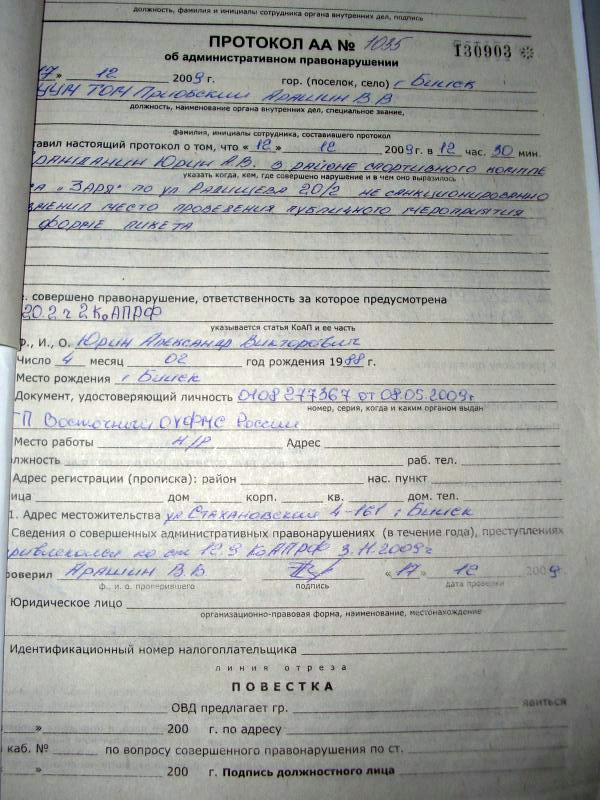 должность, фамилия и инициалы сотрудника органа внутренних дел, подпись
ПРОТОКОЛ АА № 1035
130903 ※
об административном правонарушении
17» 12 2009 г. гор. (поселок, село) г Бийск
ТОМ Приобский Арашин В.В
должность, наименование органа внутренних дел, специальное звание,
фамилия, инициалы сотрудника, составившего протокол
тавил настоящий протокол о том, что « 12 » 12 2009 г. в 12 час. 30 мин.
ражданин Юрин А.В. в районе спортивного компле
указать когда, кем, где совершено нарушение и в чем оно выразилось
са „Заря" по ул Радищева 20/2 не санкционированно
менил место проведения публичного мероприятия
форме пикета
е. совершено правонарушение, ответственность за которое предусмотрена
20.2 ч 2 КоАПРФ
указывается статья КоАП и ее часть
Ф., И., О. Юрин Александр Викторович
Число 4 месяц 02 год рождения 1988 г.
Место рождения г Бийск
Документ, удостоверяющий личность 0108 277367 от 08.05.2009г
номер, серия, когда и каким органом выдан
ТП Восточный ОУФМС России
Место работы н/р Адрес
олжность раб. тел.
Адрес регистрации (прописка): район нас. пункт
ица дом корп. кв. дом. тел.
1. Адрес местожительства ул Стахановская 4-161 г Бийск
Сведения о совершенных административных правонарушениях (в течение года), преступлениях
ривлекался по ст 12.9 КоАПРФ 3.11.2009г
роверил Арашин В.В « 17 » 12 2009
ф., и. о. проверившего подпись дата проверки
Юридическое лицо
организационно-правовая форма, наименование, местонахождение
Идентификационный номер налогоплательщика
линия отреза
ПОВЕСТКА
ОВД предлагает гр. явиться
» 200 г. по адресу
каб. № по вопросу совершенного правонарушения по ст.
» 200 г. Подпись должностного лица